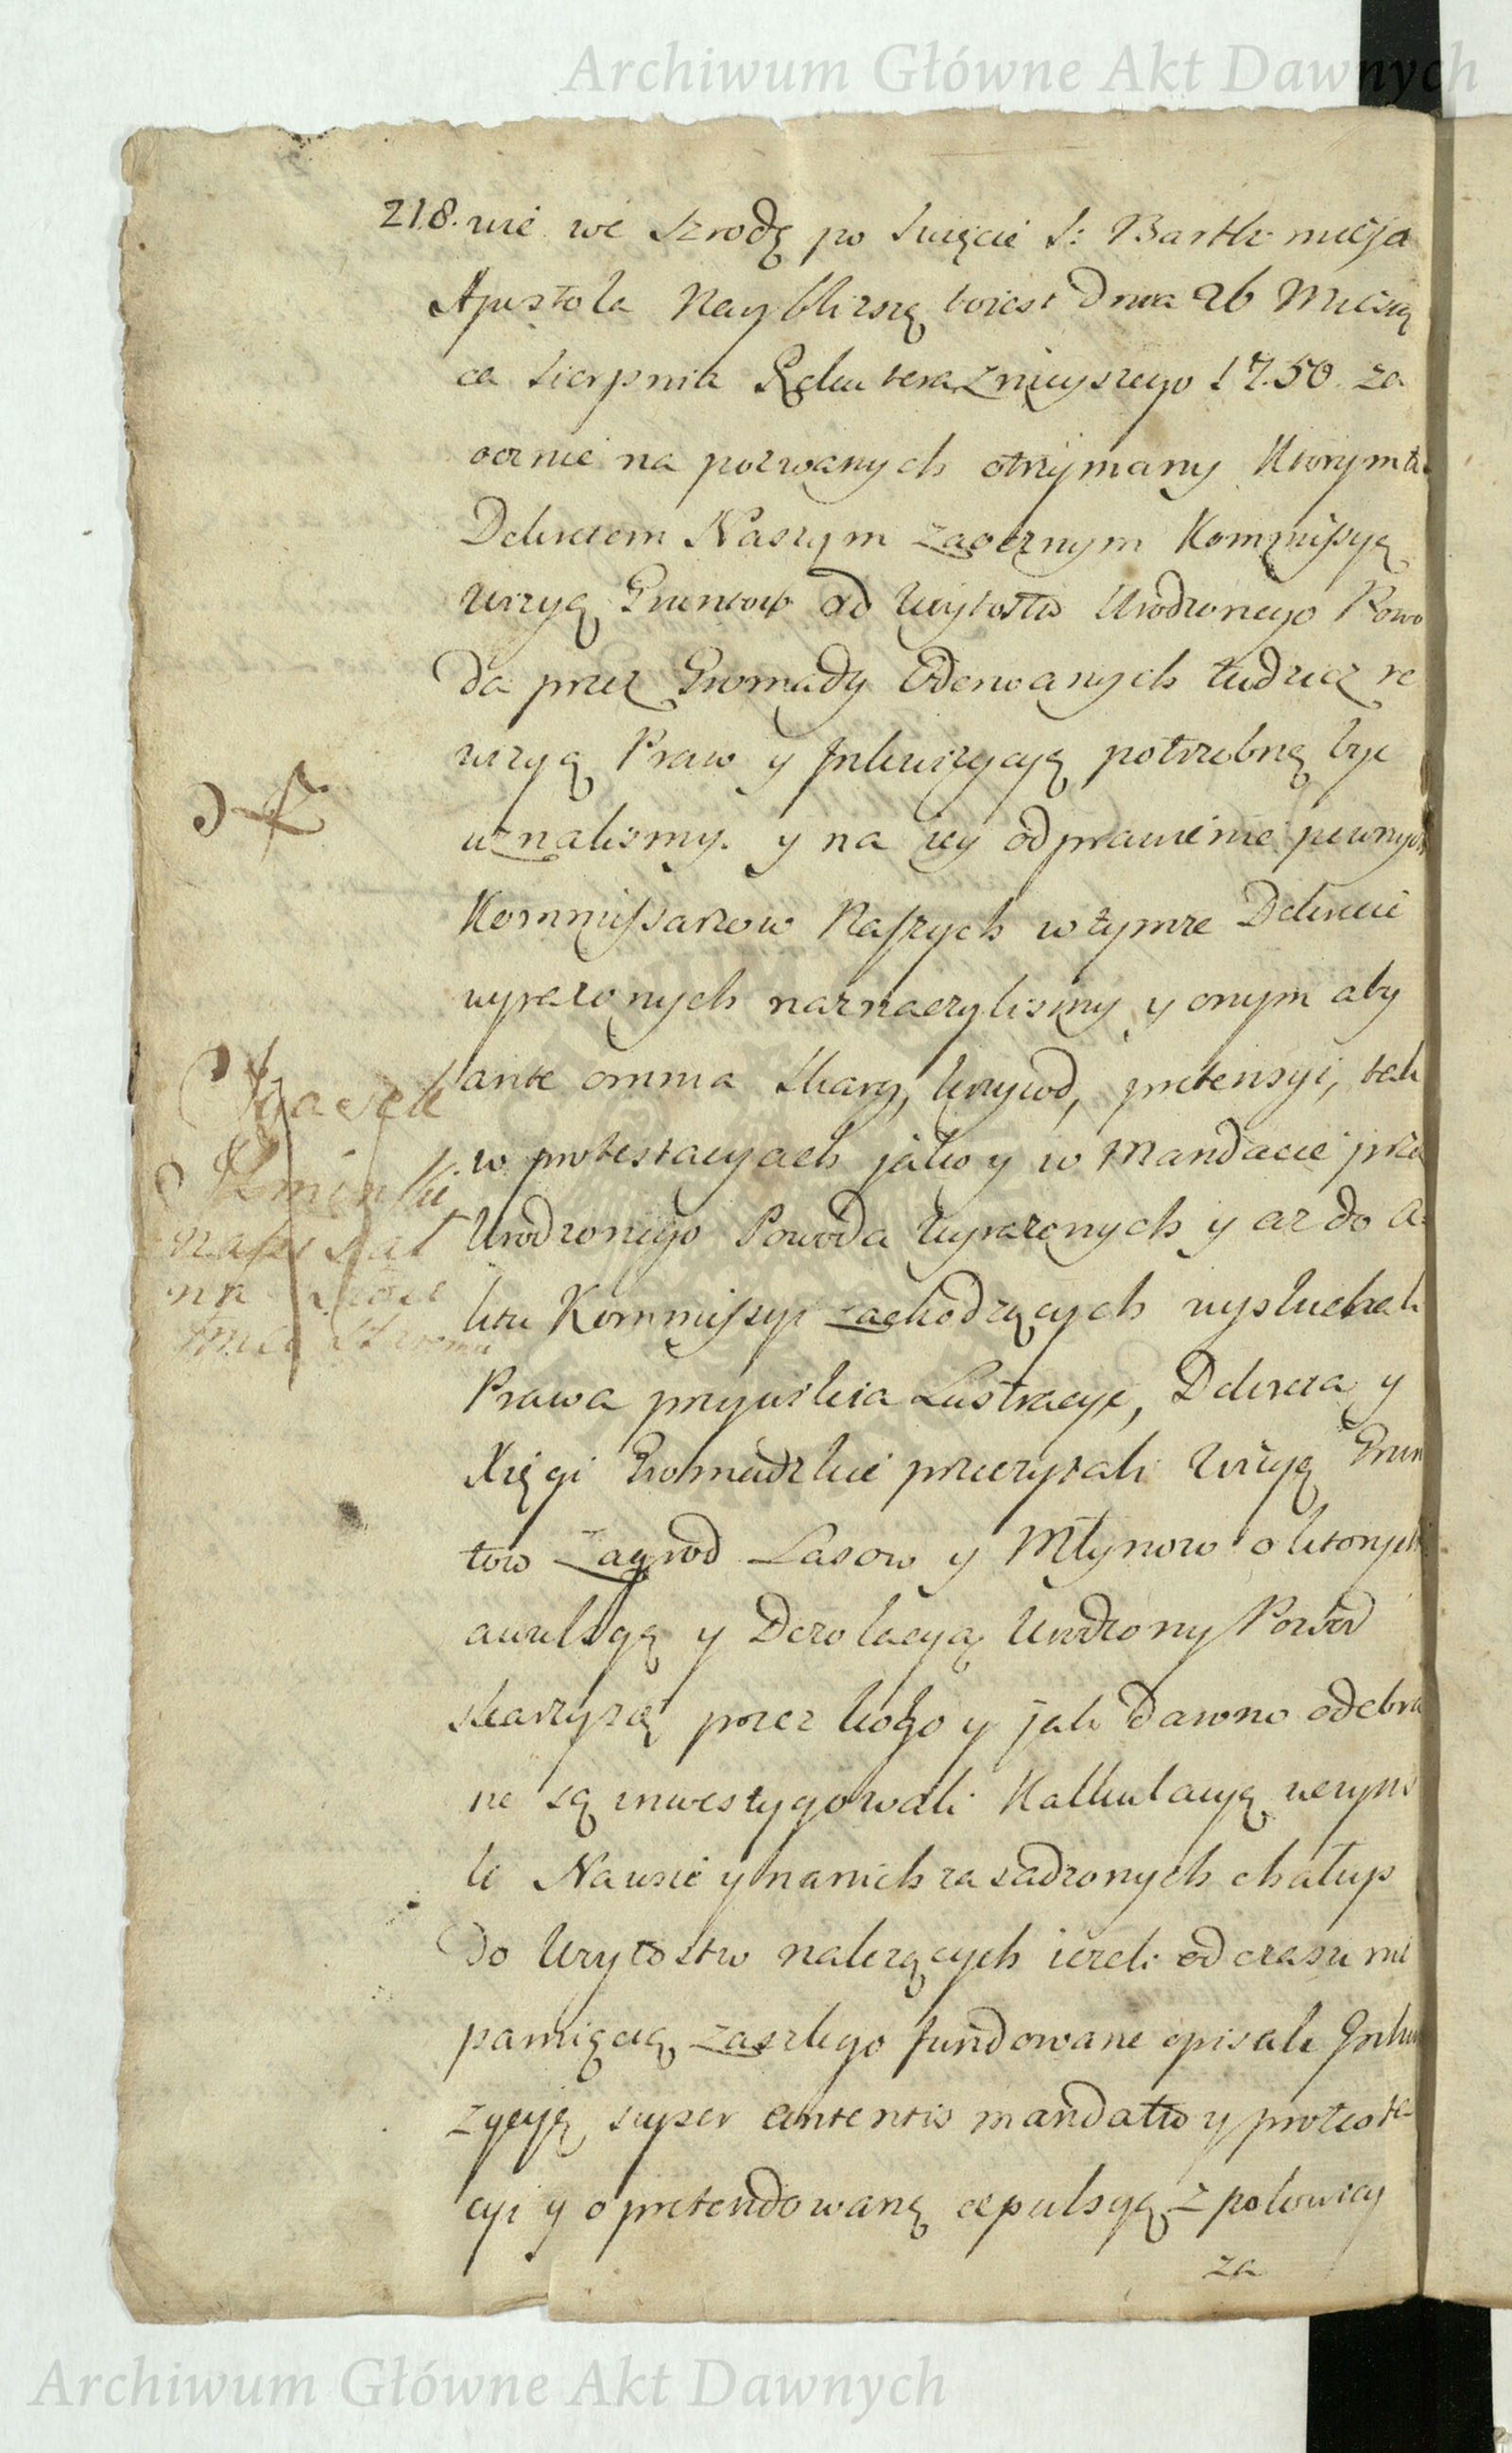 Archiwum Główne Akt Dawnych
218. wie we Szrodę po Swięcie S: Bartło mieja
Apostoła Nayblizszą toiest Dnia 26 Miesią
ca Sierpnia Roku teraznieyszego 1750 za
ocznie na pozwanych otrzymany Ktorym to
Dekretem Naszym zaocznym Kommissyą
Wizyą Gruntow od Woytostw Urodzonego Powo
da przez Gromady Oderwanych tudziesz re
wizyą Praw y Inkwizycyą potrzebną byc
uznalismy. y na iey odprawienie pewnych
Kommissarzow Naszych w tymze Dekrecie
wyrazonych naznaczylismy y onym aby
ante omnia Skarg, krzywd, pretensyi, tak
w protestacyach jako y w Mandacie przez
Urodzonego Powoda wyrazonych y az do A
ktu Kommissyi zachodzących wysłuchali
Prawa przywileia Lustracye, Dekreta y
Xięgi Gromadzkie przeczytali Wizyą Grun
tow Zagrod Lasow y Młynow o ktorych
awulsyą y Dezolacyą Urodzony Powod
skarzy się przez kogo y jak Dawno odebra
ne są inwestygowali Kalkulacyą
le Nawsie y nanich zasadzonych chałup
Do Woytostw nalezących iezeli od czasu nie
pamięcią zaszłego fundowane opisali Inkwi
zycyą super contentis mandatu y protesta
cyi y o pretendowaną expulsyą z połowicy
za
Jaasek
Kminski
napisał
na
Archiwum Główne Akt Dawnych